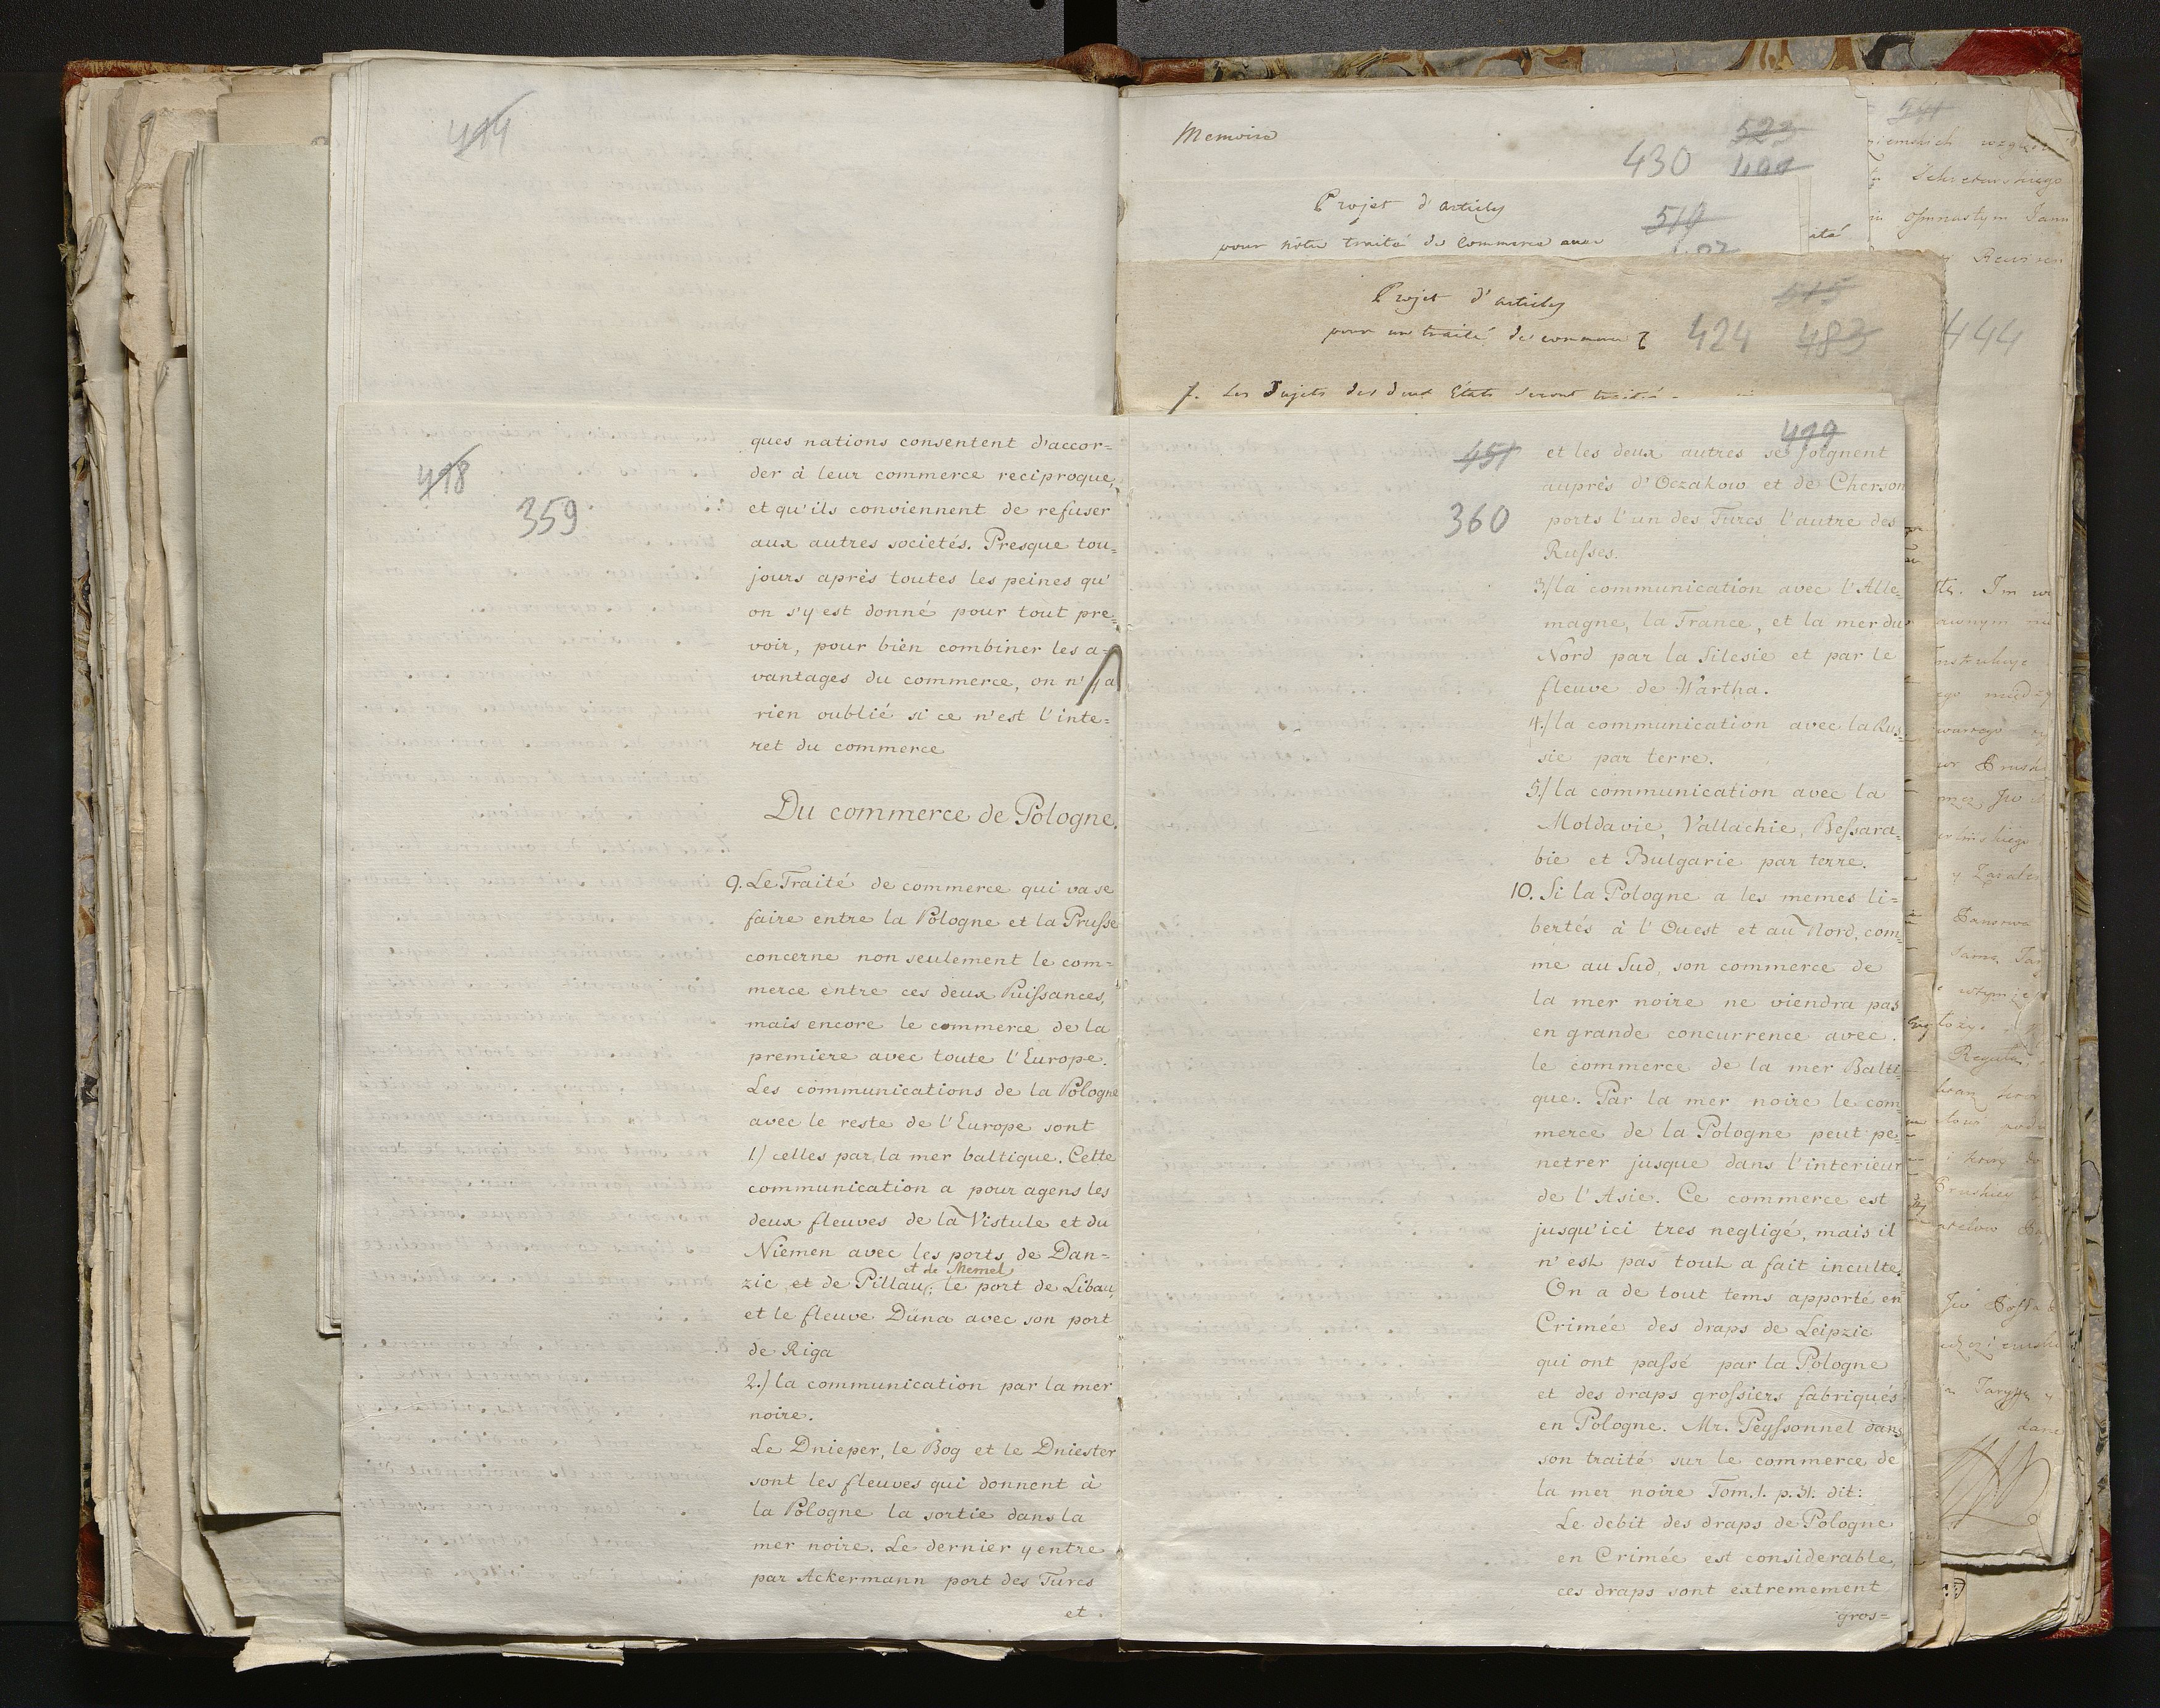 414
418
359
ques nations consentent d'accor=
der à leur commerce reciproque,
et qu'ils conviennent de refuser
aux autres societés. Presque tou=
jours après toutes les peines qu'
on s'y est donné pour tout pre=
voir, pour bien combiner les a=
vantages du commerce, on n'y a
rien oublié si ce n'est l'inte=
ret du commerce
Du commerce de Pologne.
9. Le Traité de commerce qui va se
faire entre la Pologne et la Prusse
concerne non seulement le com=
merce entre ces deux Puissances,
mais encore le commerce de la
premiere avec toute l'Europe.
Les communications de la Pologne
avec le reste de l'Europe sont
1.) celles par la mer baltique. Cette
communication a pour agens les
deux fleuves de la Vistule et du
Niemen avec les ports de Dan=
et de Memel
zic et de Pillau; le port de Libau,
et le fleuve Düna avec son port
de Riga
2.) la communication par la mer
noire.
Le Dnieper, le Bog et le Dniester
sont les fleuves qui donnent à
la Pologne la sortie dans la
mer noire. Le dernier y entre
par Ackermann port des Turcs
et
Memoire
523
430
Projet d'articles
510
pour nôtre traité de Commerce avec
Projet d'articles
515
pour un traité de commerce
424 483
7. Les Sujets des deux Etats seront
444
419
451
360
et les deux autres se joignent
auprès d'Oczakow et de Cherson
ports l'un des Turcs l'autre des
Russes.
3.) la communication avec l'Alle=
magne, la France, et la mer du
Nord par la Silesie et par le
fleuve de Wartha.
4.) la communication avec la Rus=
sie par terre.
5.) la communication avec la
Moldavie, Vallachie, Bessara=
bie et Bulgarie par terre.
10. Si la Pologne a les memes li=
bertés à l'Ouest et au Nord, com=
me au Sud, son commerce de
la mer noire ne viendra pas
en grande concurrence avec
le commerce de la mer Balti=
que. Par la mer noire le com=
merce de la Pologne peut pe=
netrer jusque dans l'interieur
de l'Asie. Ce commerce est
jusqu'ici tres negligé, mais il
n'est pas tout a fait inculte.
On a de tout tems apporté en
Crimée des draps de Leipzic
qui ont passé par la Pologne
et des draps grossiers fabriqués
en Pologne. Mr. Peyssonnel dans
son traité sur le commerce de
la mer noire Tom. 1. p. 31. dit:
Le debit des draps de Pologne
en Crimée est considerable,
ces draps sont extremement
gros=